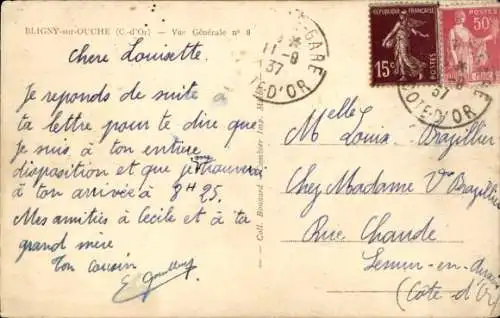 BLIGNY-sur-OUCHE (C.-d'Or) — Vue Générale n° 8
Chere Louisette
Je reponds de suite à
ta lettre pour te dire que
je suis à ton entière
disposition et que je trouverai
à ton arrivée à 8H 25.
Mes amitiés à Cécile et à ta
grand mère
Ton cousin
Coll. Bonnard
GARE
11-8
37
D'OR
RÉPUBLIQUE FRANÇAISE
15c
POSTES
50c
37
D'OR
Melle Louise
Chez Madame Vve
Rue Chaude
Semur-en-Auxois
(Côte d'Or)